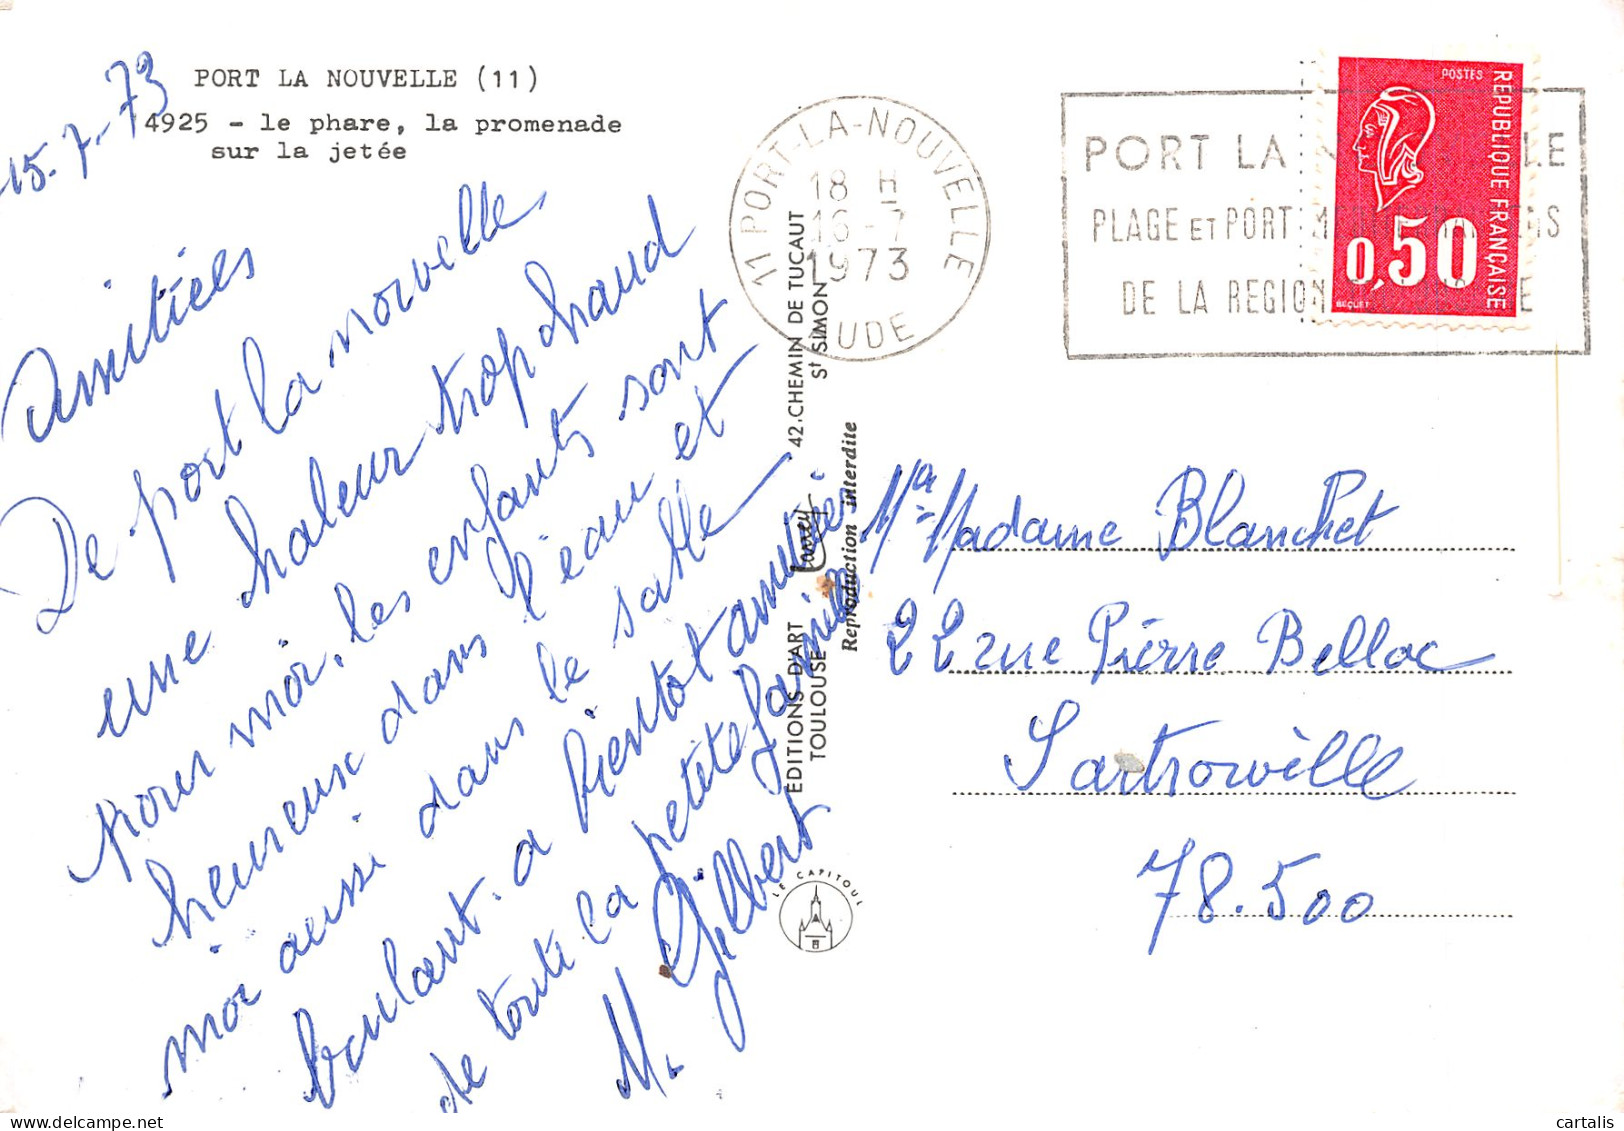 PORT LA NOUVELLE (11)
4925 - le phare, la promenade
sur la jetée
15.7.73
Amitiés
De port la nouvelle
une haleur trop chaud
pour moi, les enfants sont
heureux dans l'eau et
moi aussi dans le sable
boulant. a bientot amitiés
de toute la petite famille
M. Gilbert
11 PORT-LA-NOUVELLE
18 H
16-7
1973
AUDE
PORT LA LLE
PLAGE ET PORT
DE LA REGION
POSTES
REPUBLIQUE FRANÇAISE
0,50
BEQUET
EDITIONS D'ART Larrey 42.CHEMIN DE TUCAUT
TOULOUSE St SIMON
Reproduction interdite
LE CAPITOUL
Mr Madame Blanchet
22 rue Pierre Belloc
Sartrouville
78.500
cartalis